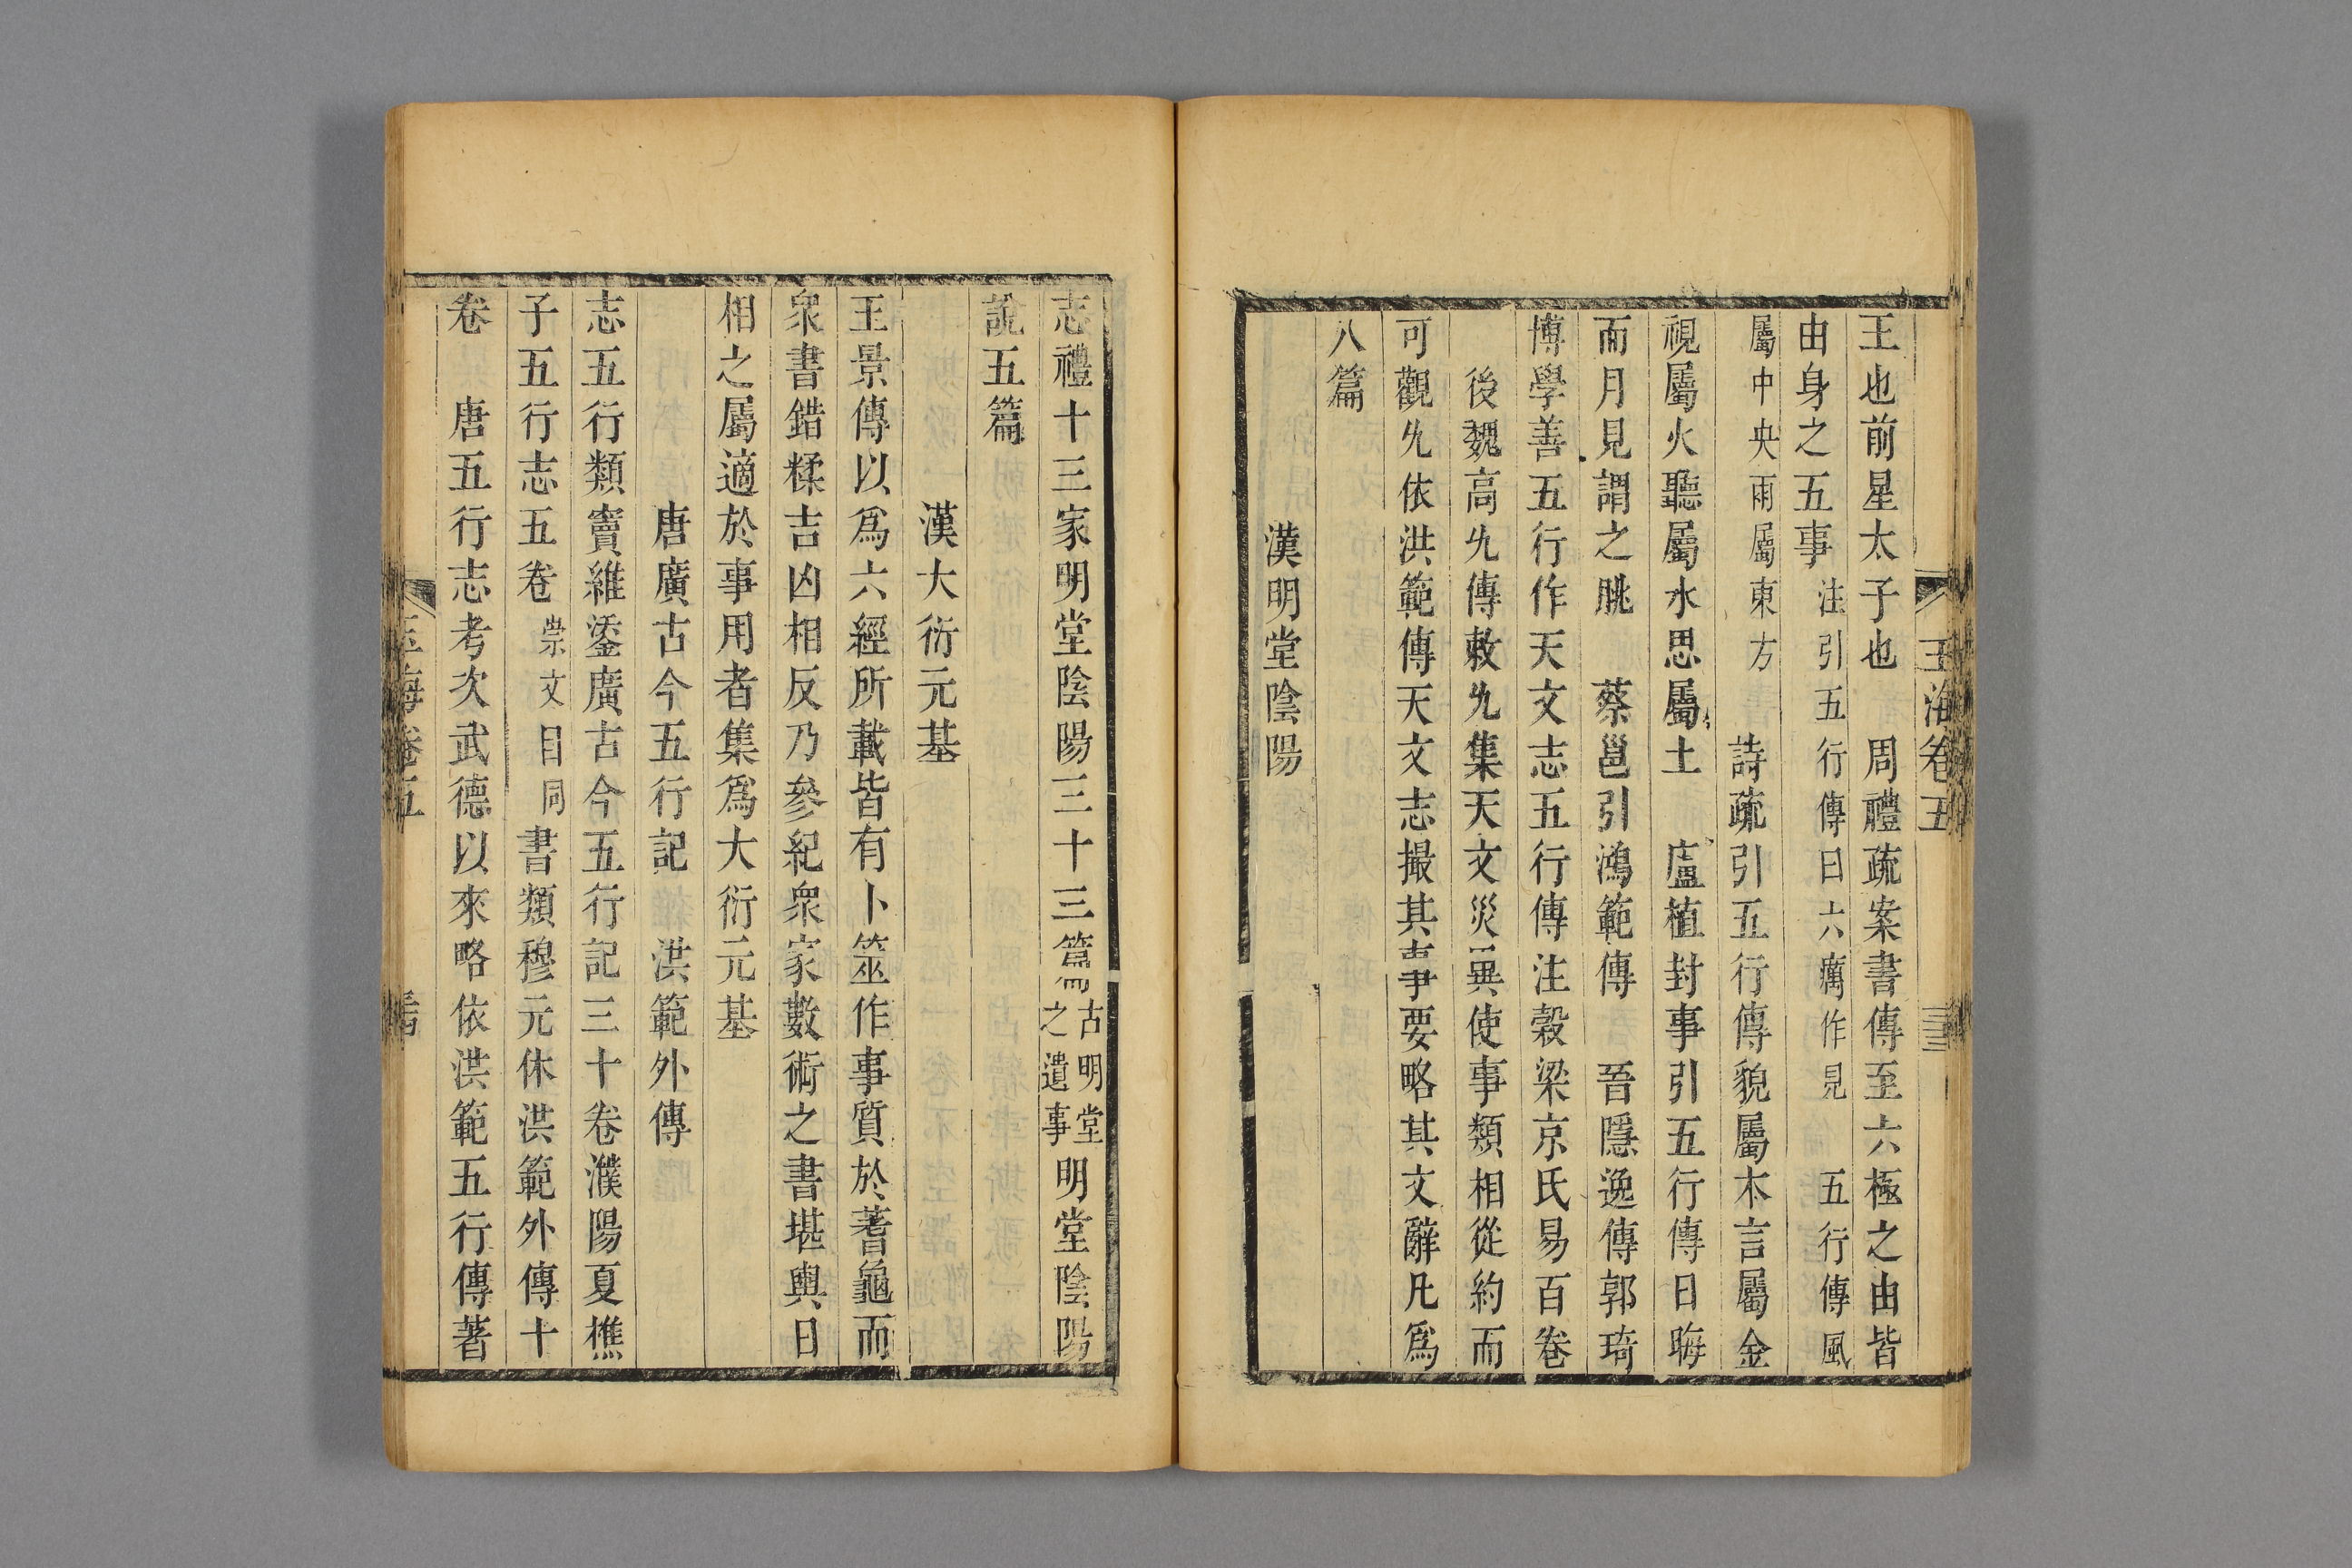 王也前星太子也　周禮疏案書傳至六極之由皆
由身之五事注引五行傳曰六癘作見　五行傳風
屬中央雨屬東方　詩疏引五行傳貌屬木言屬金
視屬火聽屬水思屬土　盧植封事引五行傳日晦
而月見謂之朓　蔡邕引鴻範傳　晉隱逸傳郭琦
博學善五行作天文志五行傳注穀梁京氏易百卷
後魏高允傳敕允集天文災異使事類相從約而
可觀允依洪範傳天文志撮其事要略其文辭凡爲
八篇
漢明堂陰陽
玉海卷五
志禮十三家明堂陰陽三十三篇古明堂之遺事明堂陰陽
說五篇
漢大衍元基
王景傳以爲六經所載皆有卜筮作事質於蓍龜而
衆書錯糅吉凶相反乃參紀衆家數術之書堪輿日
相之屬適於事用者集爲大衍元基
唐廣古今五行記　洪範外傳
志五行類竇維鋈廣古今五行記三十卷濮陽夏樵
子五行志五卷崇文目同書類穆元休洪範外傳十
卷　唐五行志考次武德以來略依洪範五行傳著
玉海卷五